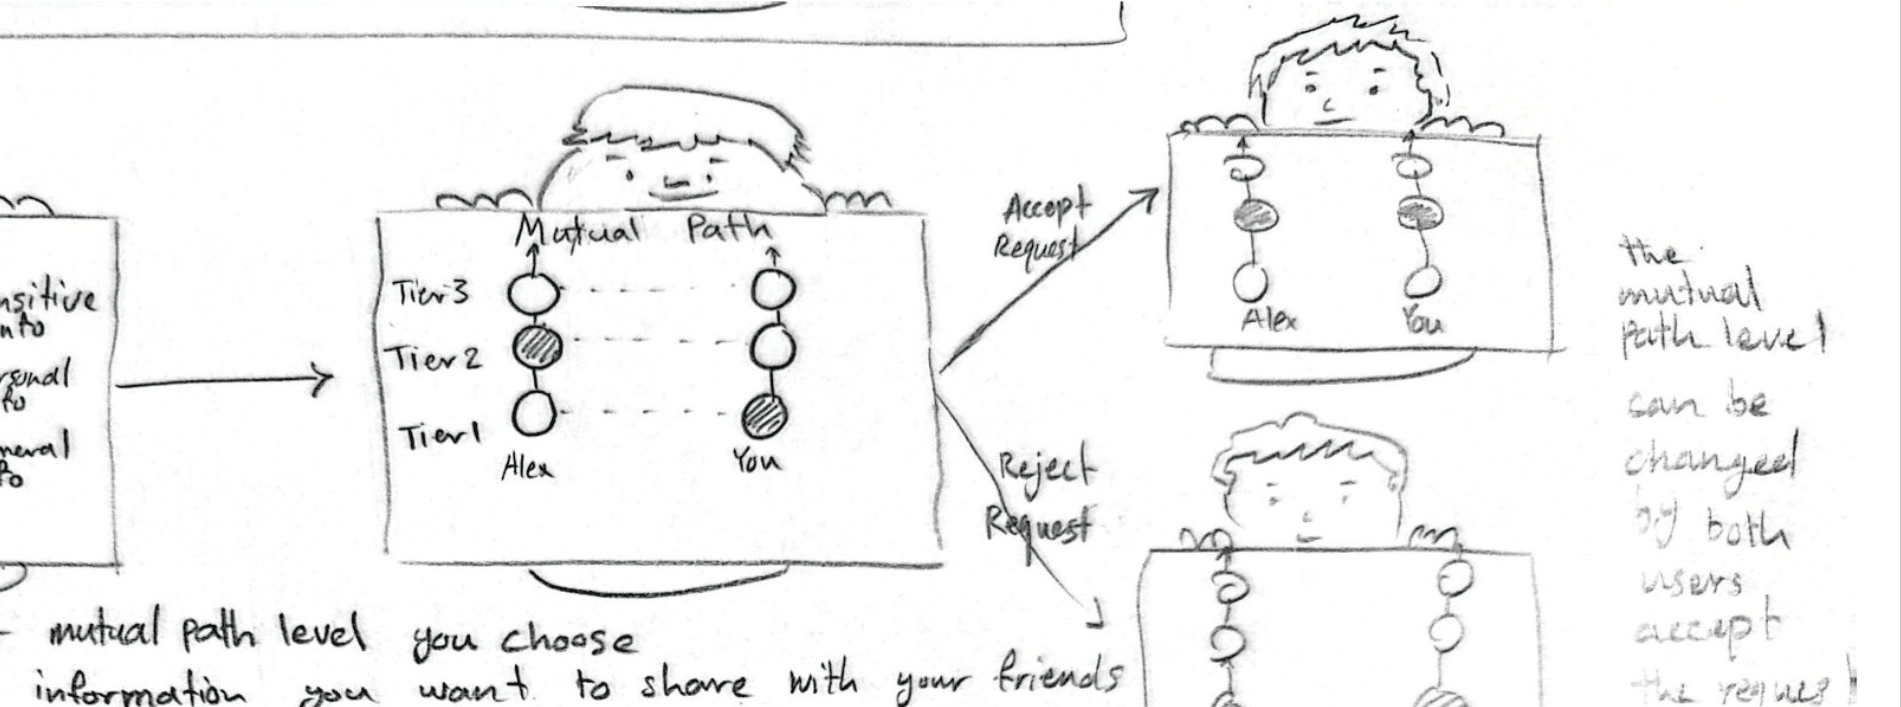 nsitive
nfo
rsonal
fo
neral
fo
Mutual Path
Tier3
Tier2
Tier1
Alex You
Accept
Request
Reject
Request
Alex You
the
mutual
path level
can be
changed
by both
users
accept
the reques
mutual path level you choose
information you want to share with your friends